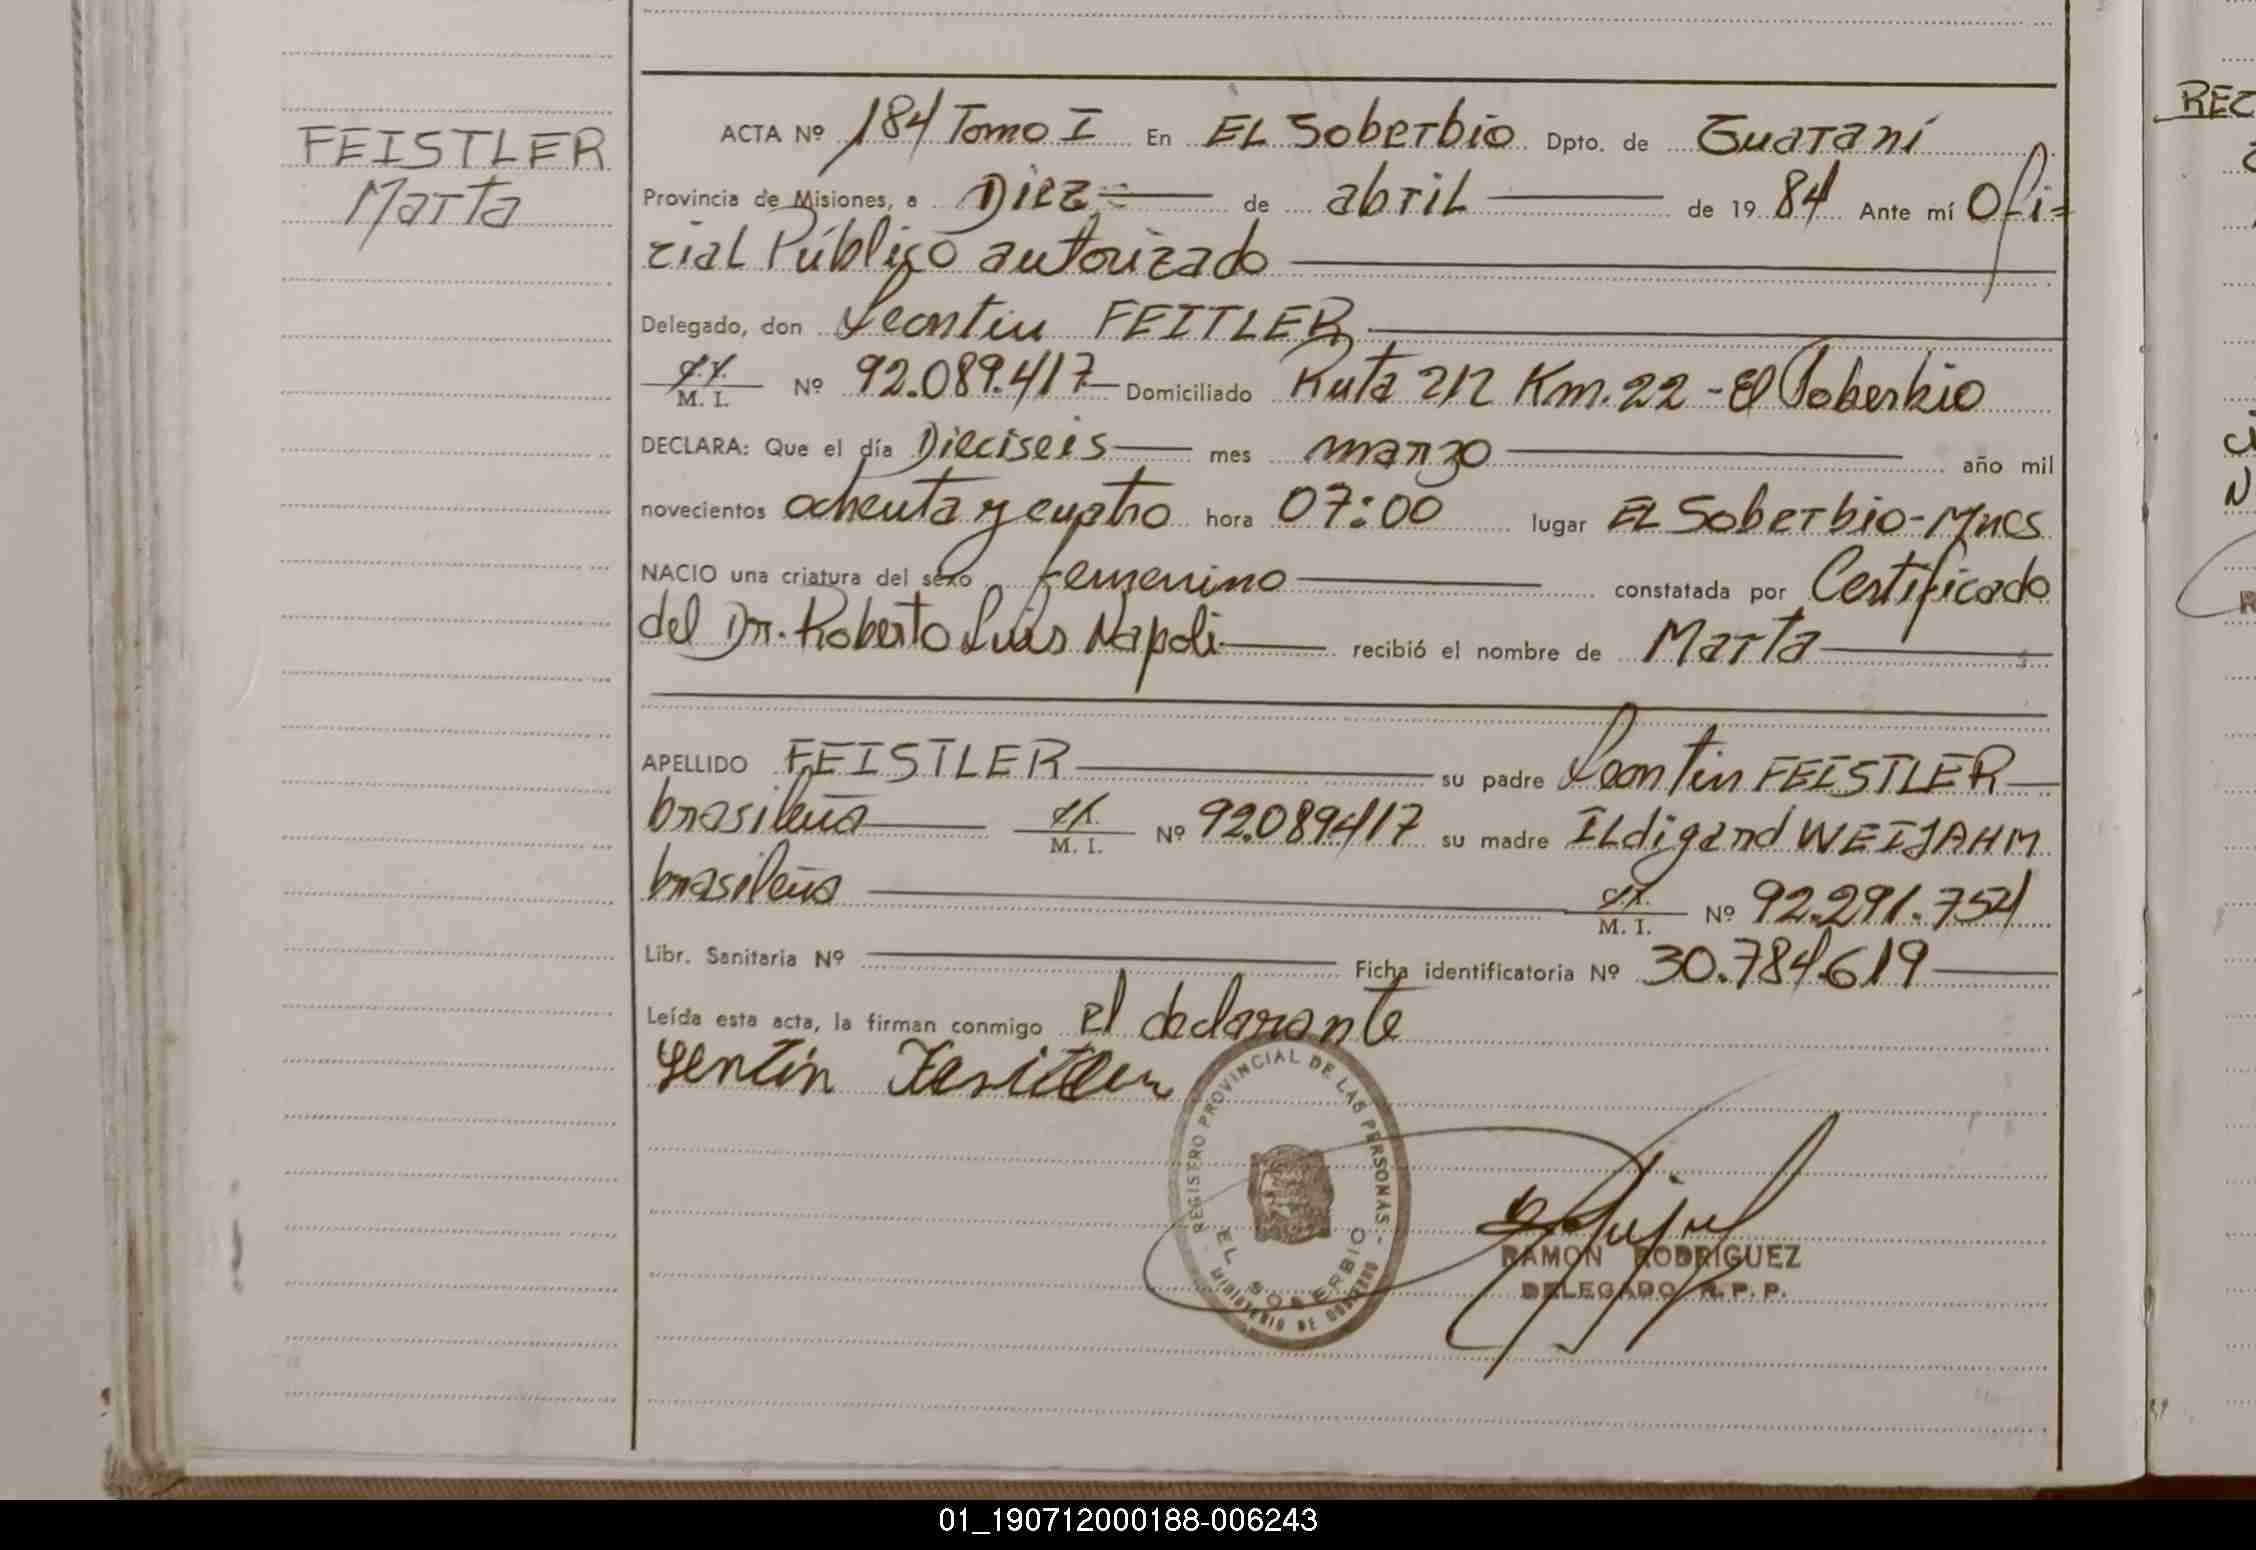 FEISTLER
Marta
ACTA Nº 184 Tomo I En EL Soberbio Dpto. de Guaraní
Provincia de Misiones, a Diez de abril de 19 84 Ante mí Ofi=
cial Público autorizado
Delegado, don Leontin FEITLER
M. I. Nº 92.089.417 Domiciliado Ruta 212 Km. 22 - El Soberbio
DECLARA: Que el día Dieciseis mes marzo año mil
novecientos ochenta y cuatro hora 07:00 lugar EL Soberbio - Mnes
NACIO una criatura del sexo femenino constatada por Certificado
del Dr. Roberto Luis Napoli recibió el nombre de Marta
APELLIDO FEISTLER su padre Leontin FEISTLER
brasileña M. I. Nº 92.089.417 su madre ILdigard WEIJAHM
brasileña M. I. Nº 92.291.754
Libr. Sanitaria Nº Ficha identificatoria Nº 30.784.619
Leída esta acta, la firman conmigo el declarante
REGISTRO PROVINCIAL DE LAS PERSONAS
EL SOBERBIO
MINISTERIO DE GOBIERNO
RAMON RODRIGUEZ
DELEGADO R. P. P.
REC
01_190712000188-006243